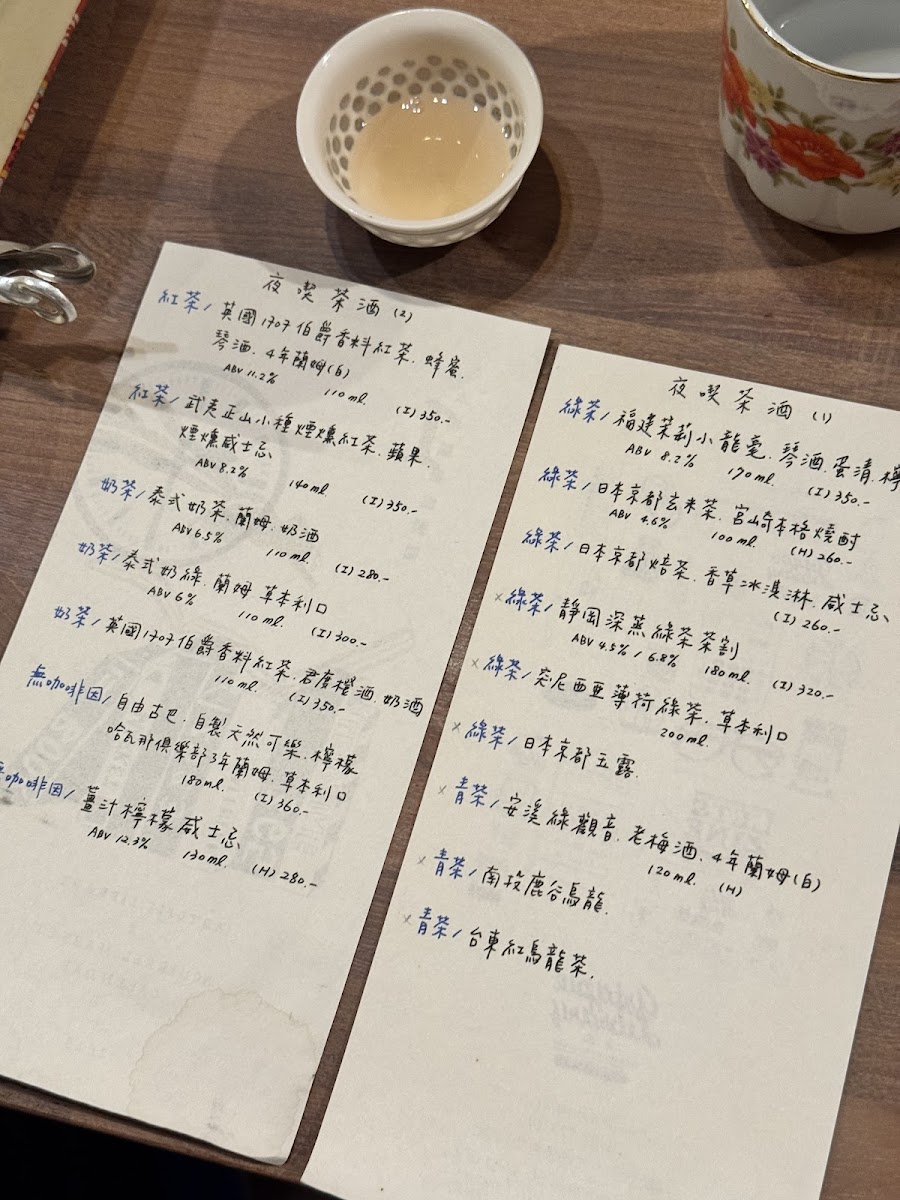 夜喫茶酒 (2)
紅茶/英國1707伯爵香料紅茶.蜂蜜.
琴酒.4年蘭姆(白)
ABV 11.2% 110ml. (I) 350.-
紅茶/武夷正山小種煙燻紅茶.蘋果.
煙燻威士忌
ABV 8.2% 140ml (I) 350.-
奶茶/泰式奶茶.蘭姆.奶酒
ABV 6.5% 110ml. (I) 280.-
奶茶/泰式奶綠.蘭姆.草本利口
ABV 6% 110ml. (I) 300.-
奶茶/英國1707伯爵香料紅茶.君度橙酒.奶酒
110ml. (I) 350.-
無咖啡因/自由古巴.自製天然可樂.檸檬
哈瓦那俱樂部3年蘭姆.草本利口
180ml. (I) 360.-
咖啡因/薑汁檸檬威士忌
ABV 12.3% 130ml. (H) 280.-
夜喫茶酒 (1)
綠茶/福建茉莉小龍毫.琴酒.蛋清.檸
ABV 8.2% 170ml. (I) 350.-
綠茶/日本京都玄米茶.宮崎本格燒酎
ABV 4.6% 100ml. (H) 260.-
綠茶/日本京都焙茶.香草冰淇淋.威士忌
(I) 260.-
×綠茶/靜岡深蒸綠茶茶割
ABV 4.5% / 6.8% 180ml. (I) 320.-
×綠茶/突尼西亞薄荷綠茶.草本利口
200ml.
×綠茶/日本京都玉露.
×青茶/安溪綠觀音.老梅酒.4年蘭姆(白)
120ml. (H)
×青茶/南投鹿谷烏龍.
×青茶/台東紅烏龍茶.